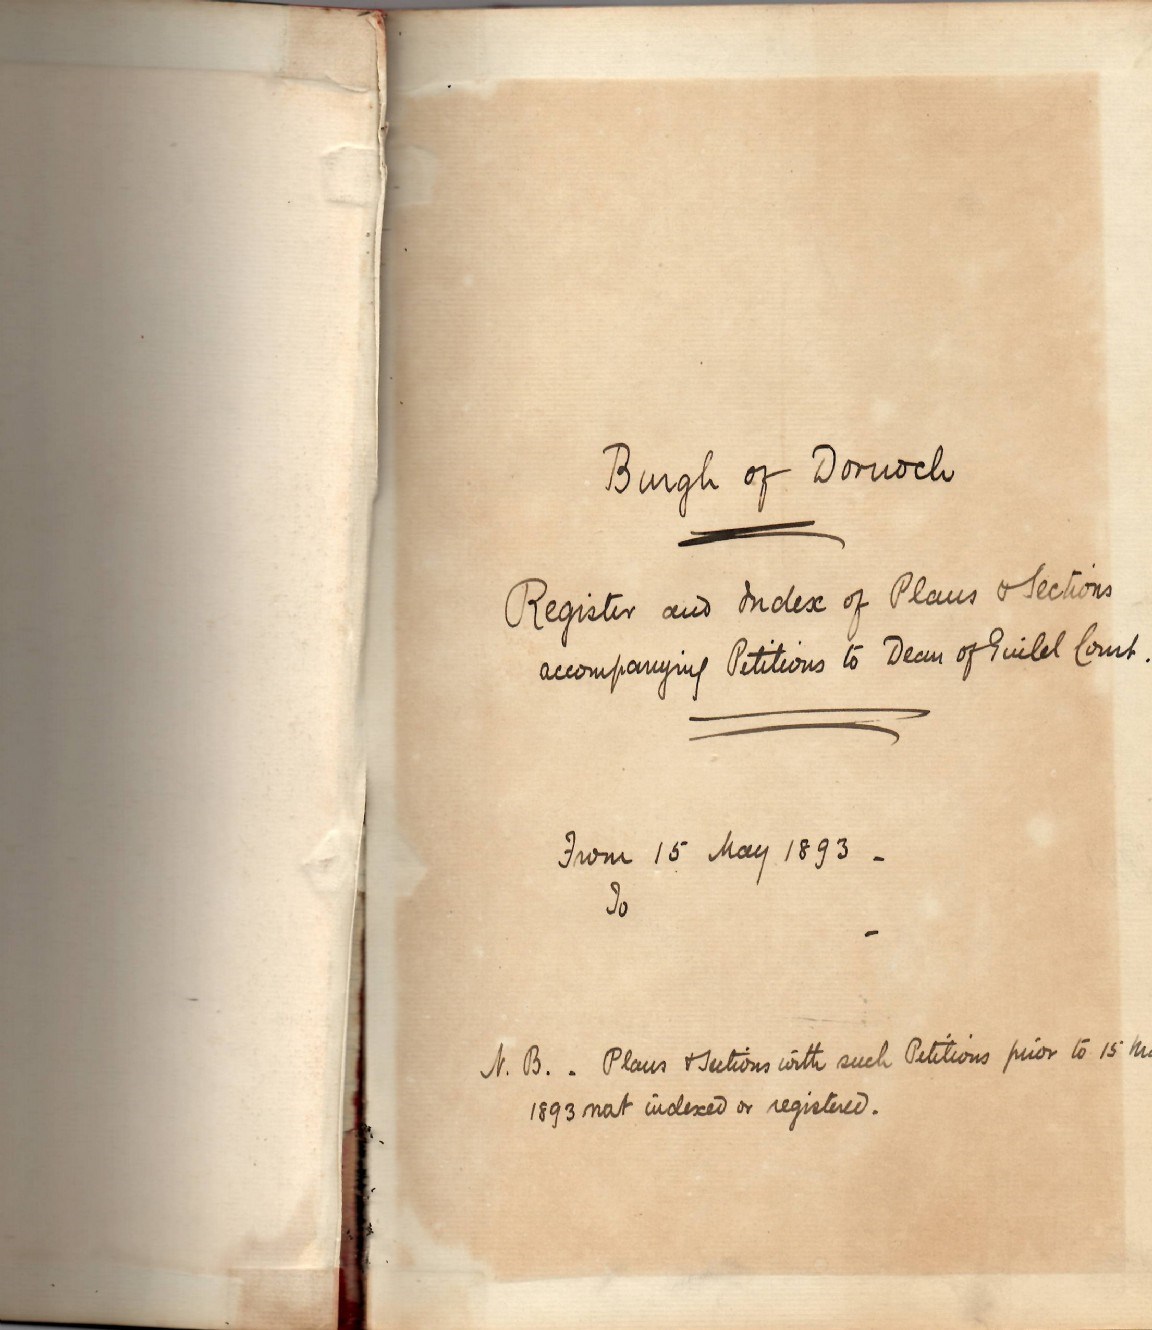 Burgh of Dornoch
Register and Index of Plans & Sections
accompanying Petitions to Dean of Guild Court.
From 15 May 1893 -
To
-
N. B. - Plans & Sections with such Petitions prior to 15
1893 not indexed or registered.